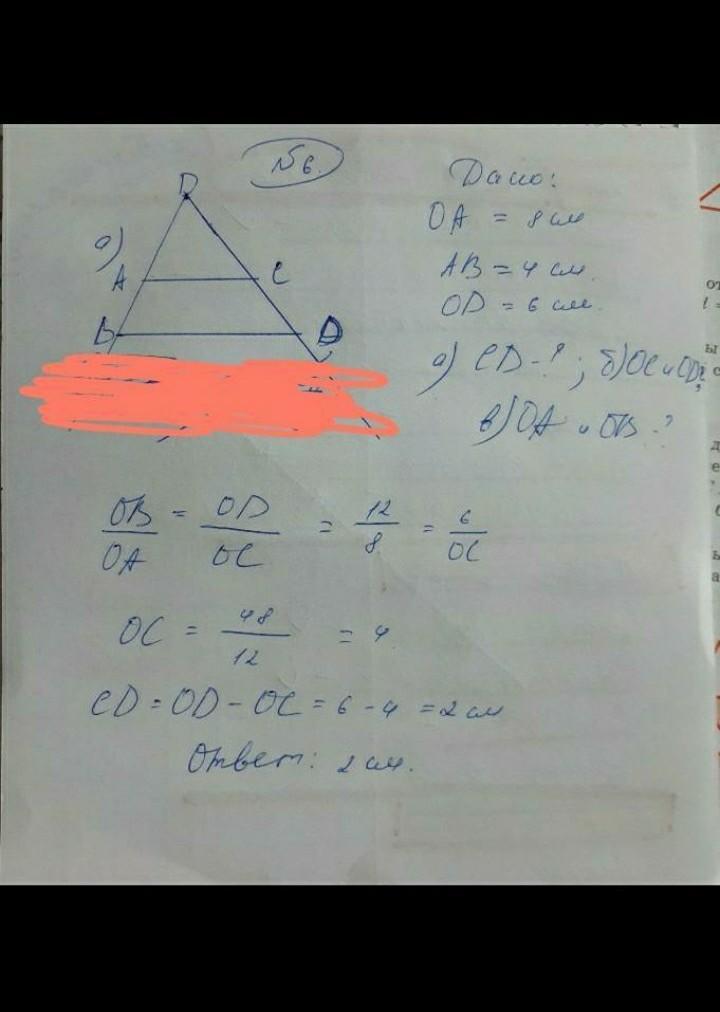 №6.
D
а)
A C
B D
Дано:
OA = 8 см
AB = 4 см.
OD = 6 см.
а) CD - ? ; б) OC и OD?
в) OA и OB - ?
OB/OA = OD/OC = 12/8 = 6/OC
OC = 48/12 = 4
CD = OD - OC = 6 - 4 = 2 см
Ответ: 2 см.